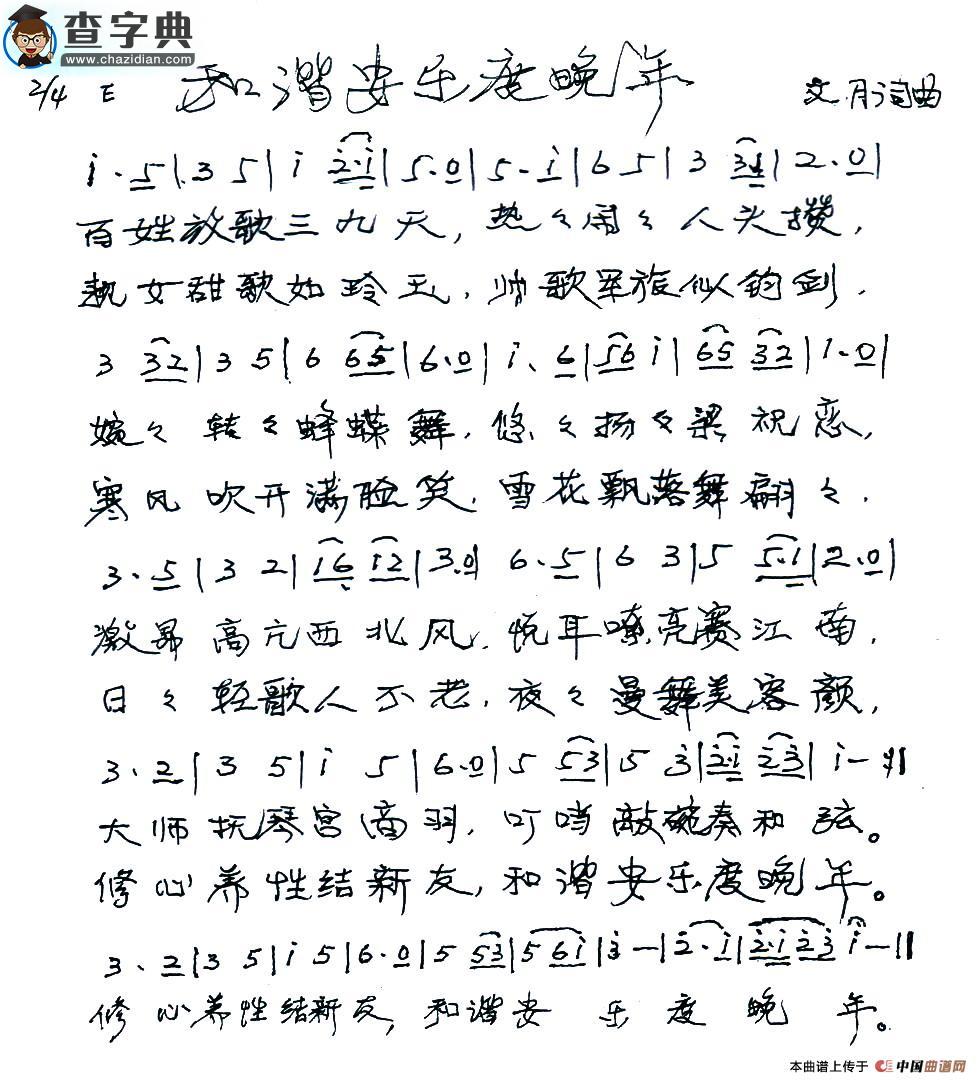 查字典
www.chazidian.com
2/4 E 和谐安乐度晚年 文月词曲
i·5|3 5|i 2·i|5·0|5·i|6 5|3 31|2·0|
百姓放歌三九天，热々闹々人头攒，
女甜歌如玲玉，帅歌军旅似钧剑．
3 32|3 5|6 65|6·0|i·6|56 i|65 32|1·0|
婉々转々蜂蝶舞．悠々扬々梁祝恋，
寒风吹开满脸笑．雪花飘落舞翩々．
3·5|3 2|16 12|3·0|6·5|6 3|5 5·1|2·0|
激昂高亢西北风．悦耳嘹亮赛江南，
日々轻歌人不老．夜々曼舞美容颜，
3·2|3 5|i 5|6·0|5 53|5 3|2·i 23|i-||
大师抚琴宫商羽，叮当敲碗奏和弦。
修心养性结新友，和谐安乐度晚年。
3·2|3 5|i 5|6·0|5 53|5 6i|3-|2·i|2·i 23 i-||
修心养性结新友，和谐安乐度晚年。
本曲谱上传于 中国曲谱网